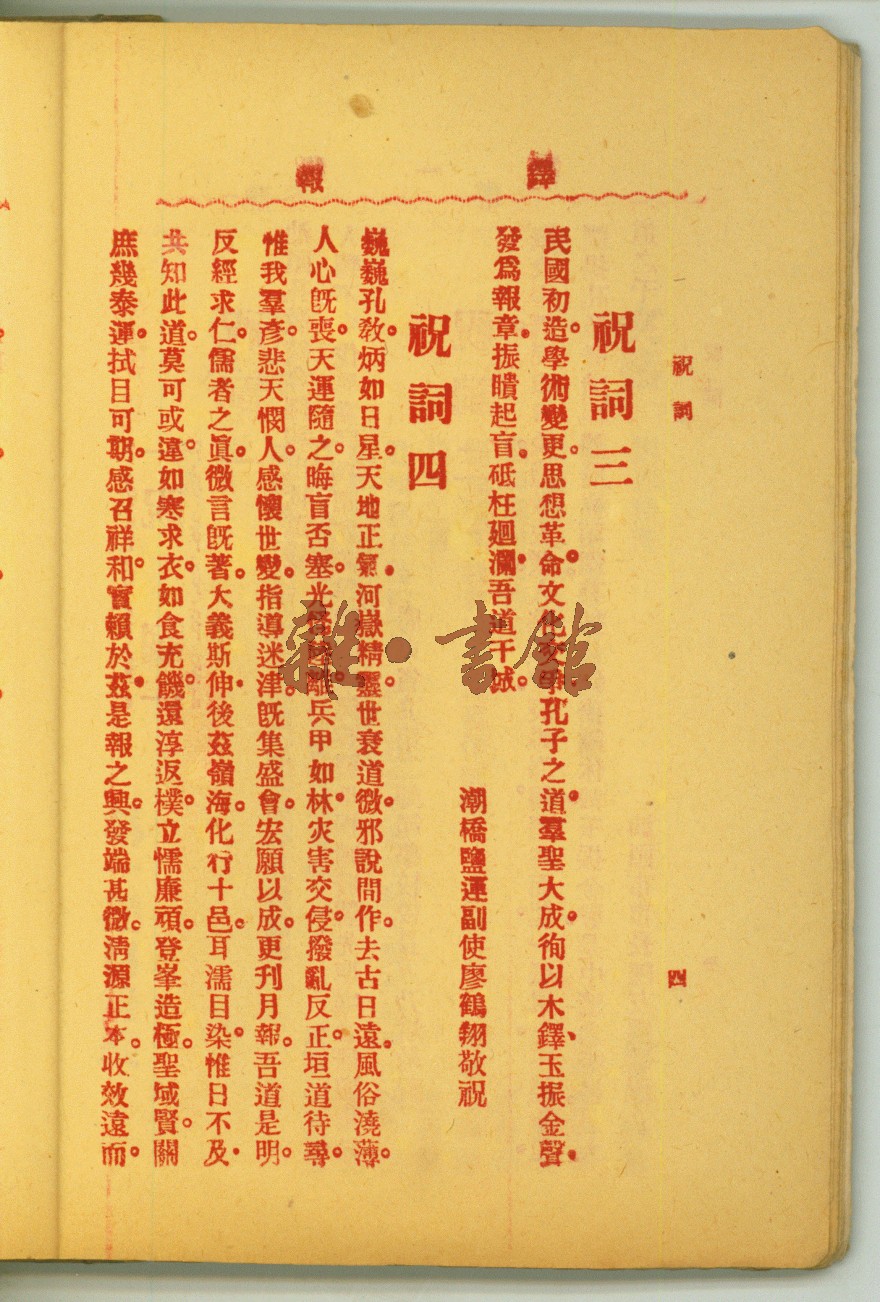 鐸報
祝詞
四
祝詞三
民國初造。學術變更。思想革命。文化孔子之道。羣聖大成。徇以木鐸、玉振金聲。
發爲報章。振瞶起盲。砥柱廻瀾。吾道干城。
潮橋鹽運副使廖鶴翔敬祝
祝詞四
巍巍孔敎。炳如日星。天地正氣。河嶽精靈。世衰道微。邪說間作。去古日遠。風俗澆薄。
人心旣喪。天運隨之。晦盲否塞。光離。兵甲如林。灾害交侵。撥亂反正。垣道待尋。
惟我羣彥。悲天憫人。感懷世變。指導迷津。旣集盛會。宏願以成。更刋月報。吾道是明。
反經求仁。儒者之眞。微言旣著。大義斯伸。後茲嶺海。化行十邑。耳濡目染。惟日不及。
共知此道。莫可或違。如寒求衣。如食充饑。還淳返樸。立懦廉頑。登峯造極。聖域賢關。
庶幾泰運。拭目可期。感召祥和。實賴於茲。是報之興。發端甚微。淸源正本。收效遠而。
雜·書館